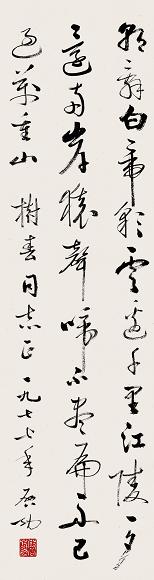 朝辭白帝彩雲邊千里江陵一夕
還兩岸猿聲啼不盡扁舟已
過萬重山 樹春同志正 一九七七年 啟功